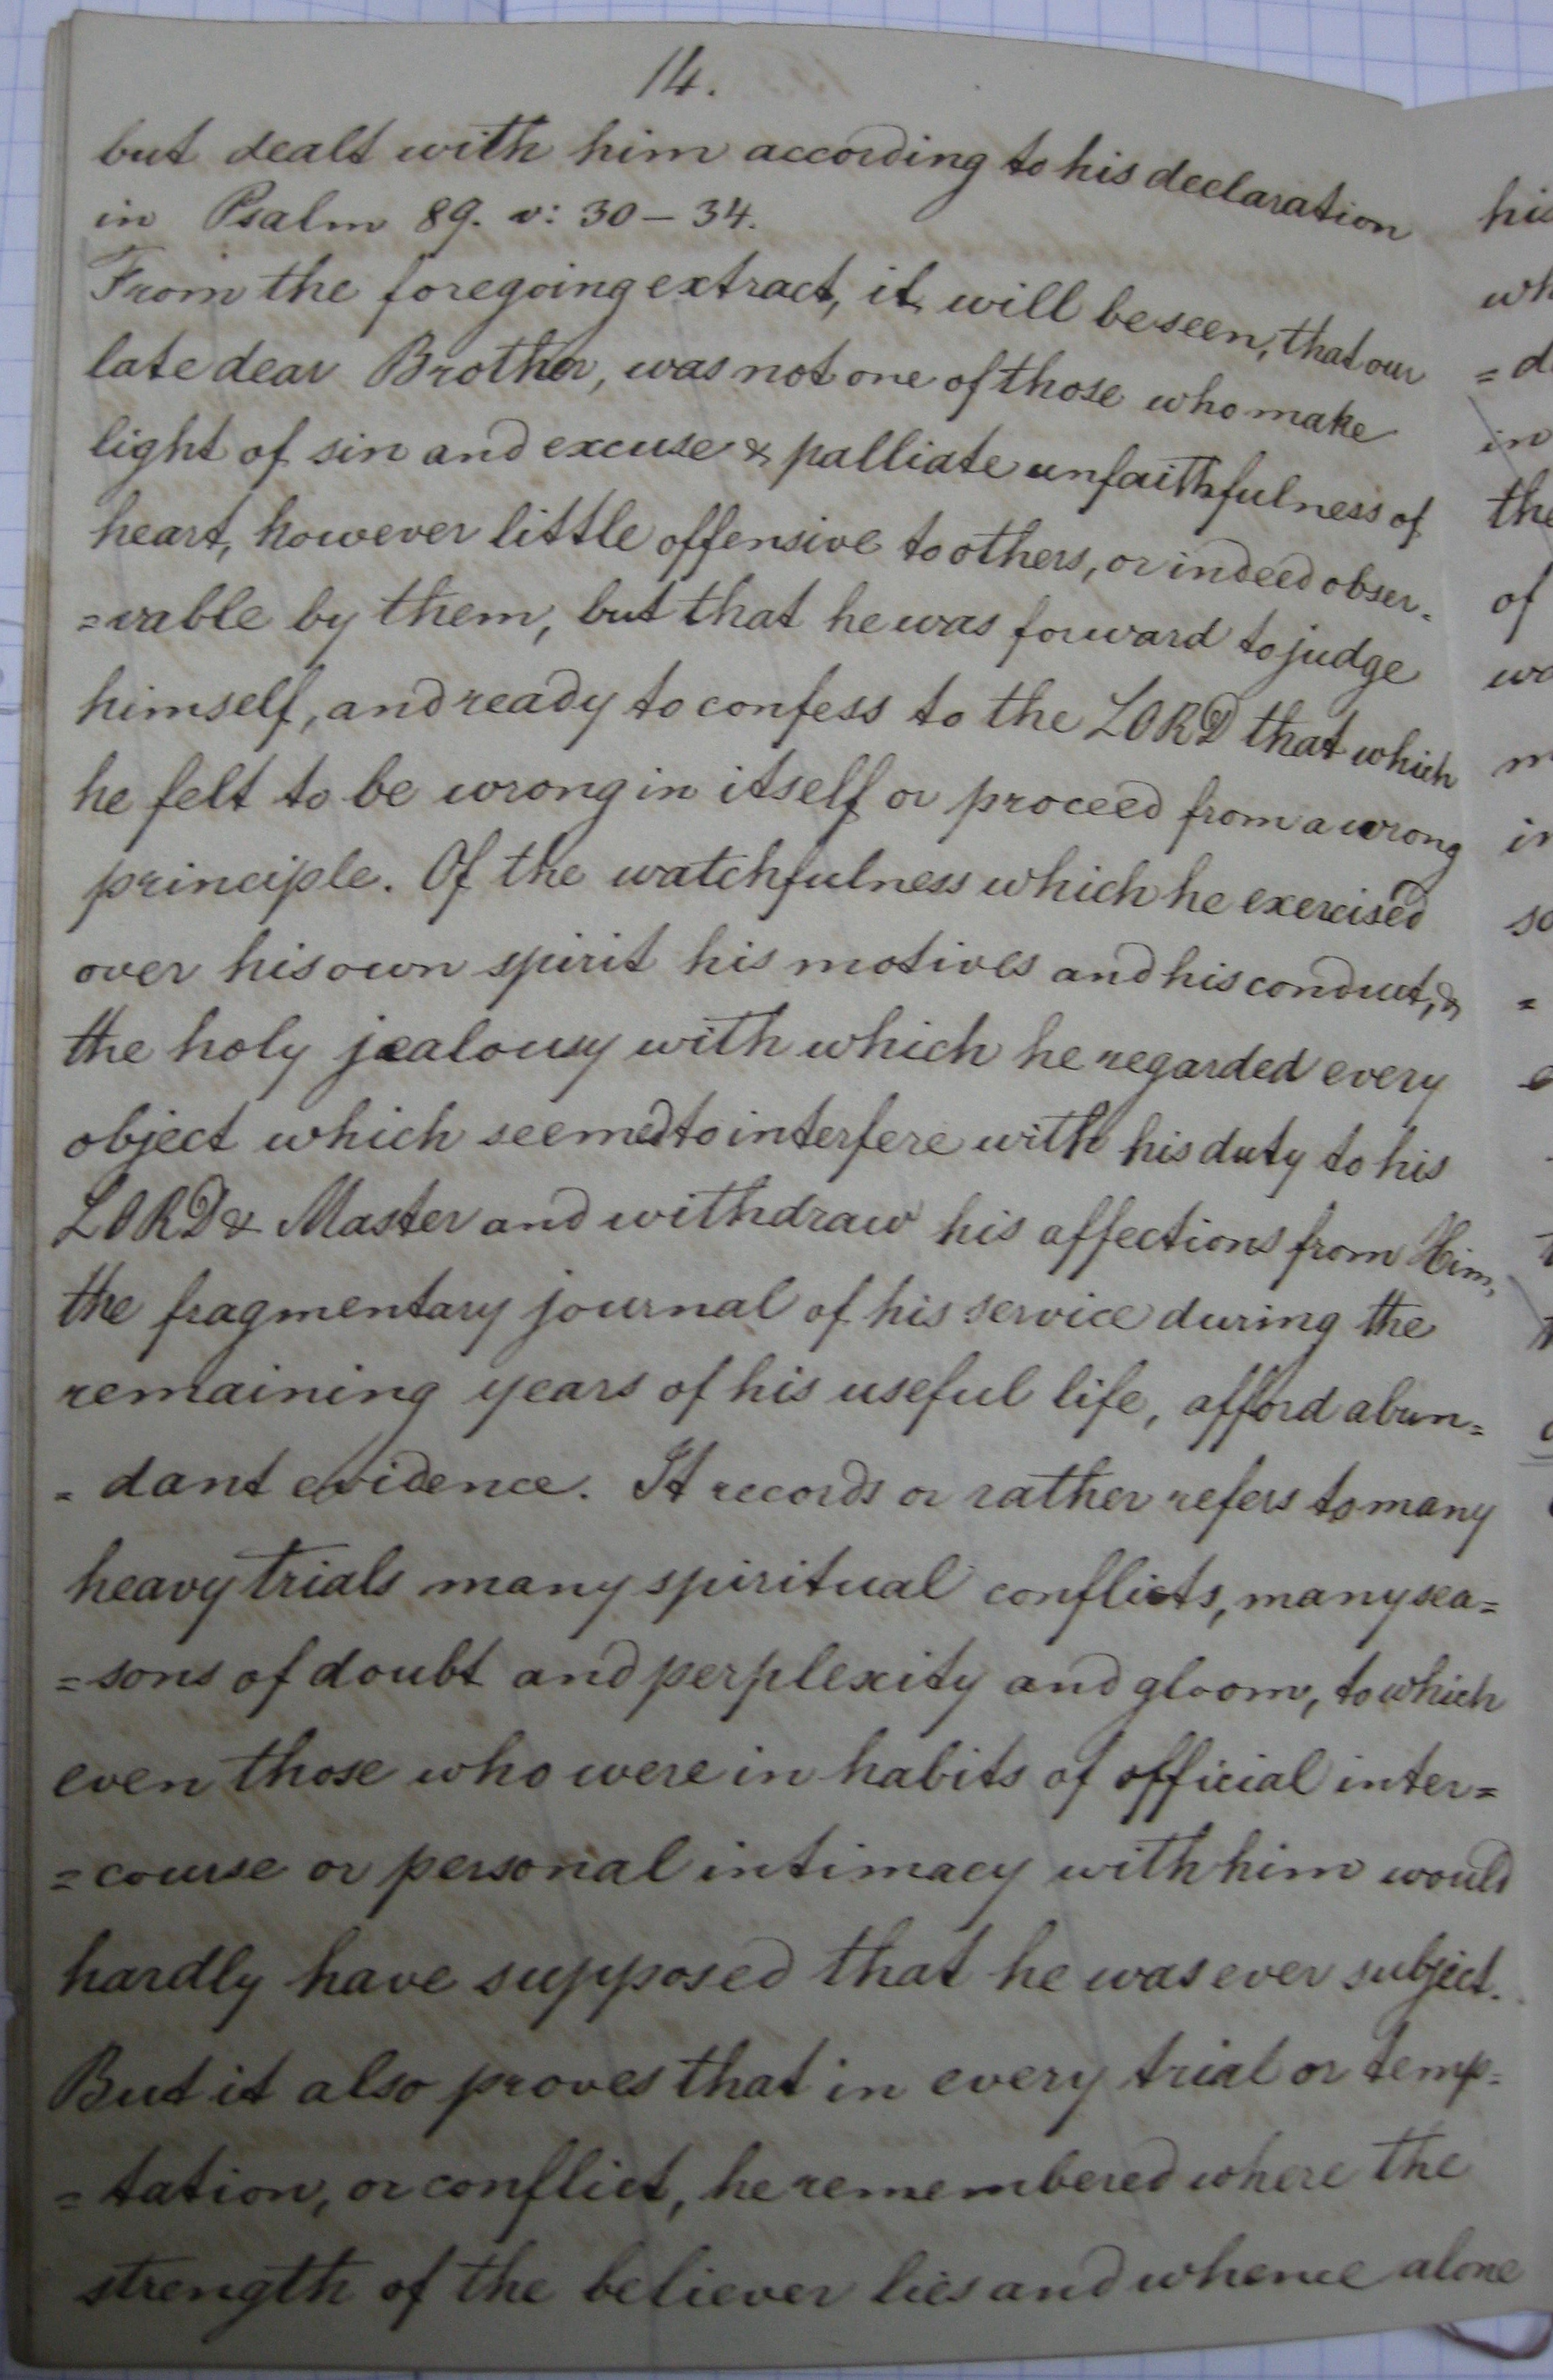 14.
but dealt with him according to his declaration
in Psalm 89. v: 30 – 34.
From the foregoing extract, it will be seen, that our
late dear Brother, was not one of those who make
light of sin and excuse & palliate unfaithfulness of
heart, however little offensive to others, or indeed obser=
=vable by them, but that he was forward to judge
himself, and ready to confess to the LORD that which
he felt to be wrong in itself or proceed from a wrong
principle. Of the watchfulness which he exercised
over his own spirit his motives and his conduct, &
the holy jealousy with which he regarded every
object which seemed to interfere with his duty to his
LORD & Master and withdraw his affections from Him,
the fragmentary journal of his service during the
remaining years of his useful life, afford abun=
=dant evidence. It records or rather refers to many
heavy trials many spiritual conflicts, many sea=
=sons of doubt and perplexity and gloom, to which
even those who were in habits of official inter=
=course or personal intimacy with him would
hardly have supposed that he was ever subject.
But it also proves that in every trial or temp=
=tation, or conflict, he remembered where the
strength of the believer lies and whence alone
his
wh
=d
in
the
of
wa
m
in
so